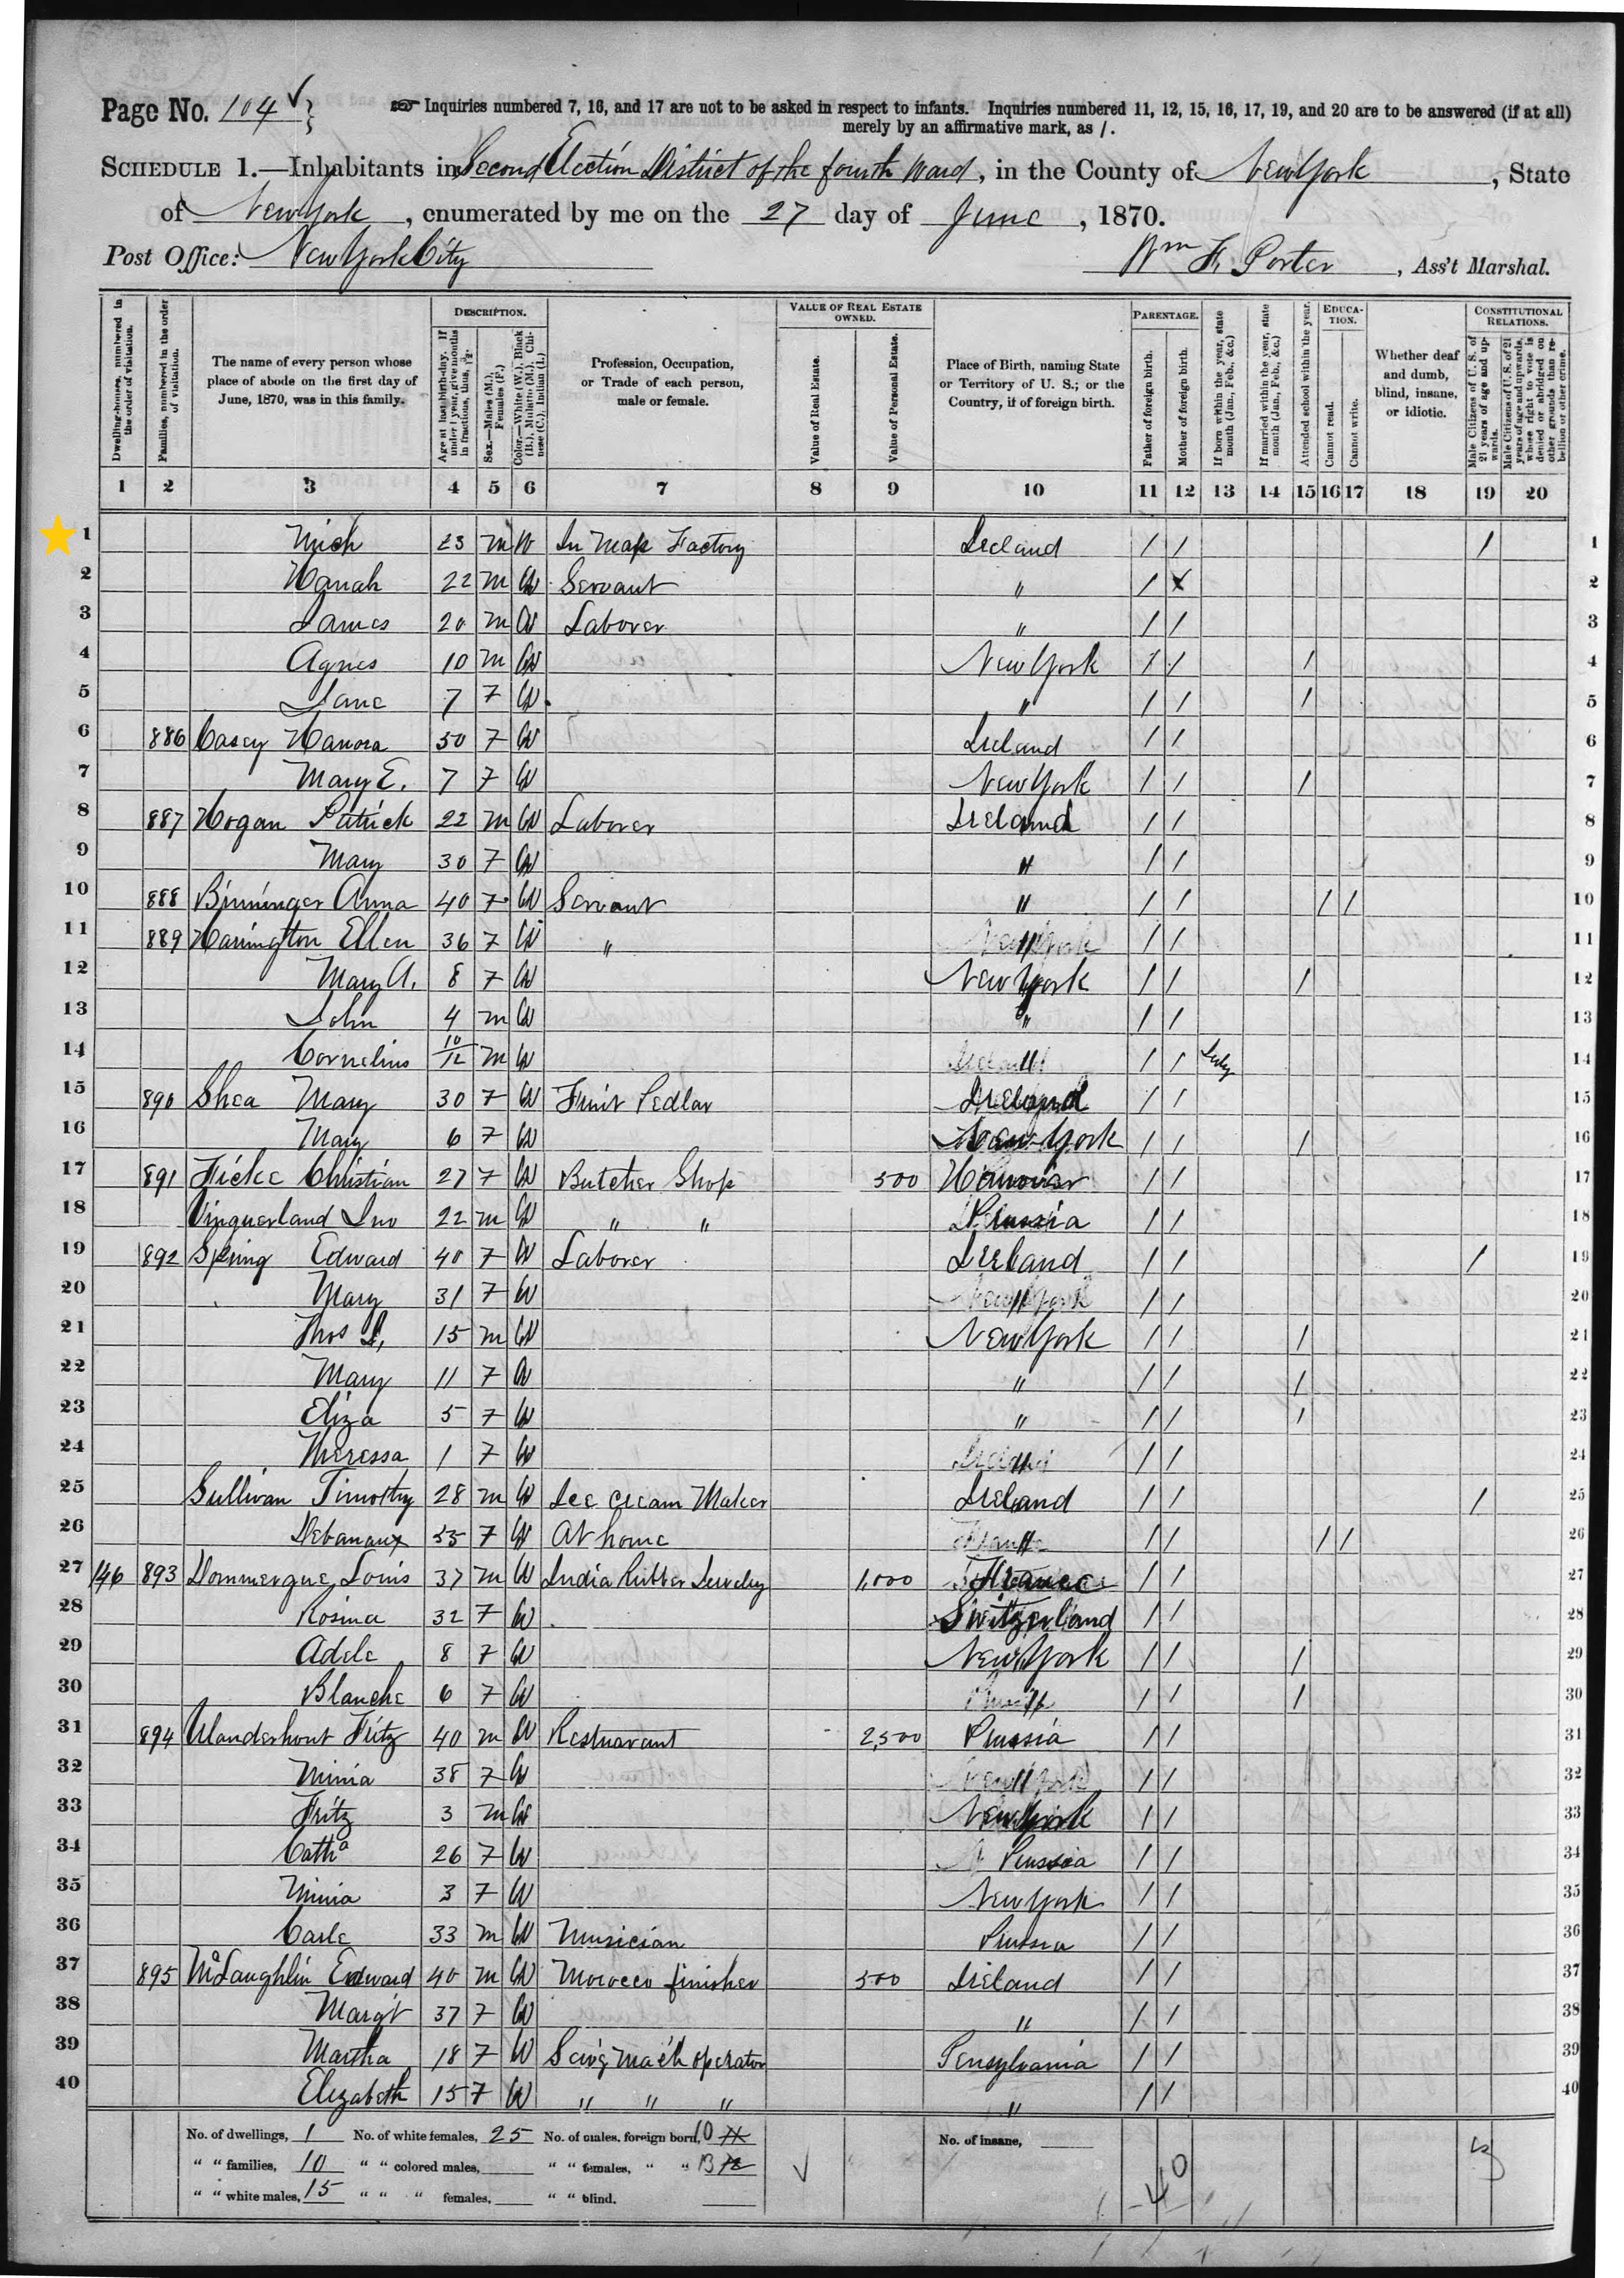 Page No. 104
Inquiries numbered 7, 16, and 17 are not to be asked in respect to infants. Inquiries numbered 11, 12, 15, 16, 17, 19, and 20 are to be answered (if at all)
merely by an affirmative mark, as /.
SCHEDULE 1.—Inhabitants in Second Election District of the fourth Ward, in the County of New York, State
of New York, enumerated by me on the 27 day of June, 1870.
Post Office: New York City Wm F. Porter, Ass't Marshal.
Dwelling-houses, numbered in the order of visitation.
Families, numbered in the order of visitation.
The name of every person whose place of abode on the first day of June, 1870, was in this family.
DESCRIPTION.
Age at last birth-day. If under 1 year, give months in fractions, thus, 3/12.
Sex.—Males (M.), Females (F.)
Color.—White (W.), Black (B.), Mulatto (M.), Chinese (C.), Indian (I.)
Profession, Occupation, or Trade of each person, male or female.
VALUE OF REAL ESTATE OWNED.
Value of Real Estate.
Value of Personal Estate.
Place of Birth, naming State or Territory of U. S.; or the Country, if of foreign birth.
PARENTAGE.
Father of foreign birth.
Mother of foreign birth.
If born within the year, state month (Jan., Feb., &c.)
If married within the year, state month (Jan., Feb., &c.)
Attended school within the year.
EDUCATION.
Cannot read.
Cannot write.
Whether deaf and dumb, blind, insane, or idiotic.
CONSTITUTIONAL RELATIONS.
Male Citizens of U. S. of 21 years of age and upwards.
Male Citizens of U. S. of 21 years of age and upwards, whose right to vote is denied or abridged on other grounds than rebellion or other crime.
1 2 3 4 5 6 7 8 9 10 11 12 13 14 15 16 17 18 19 20
1 Mich 23 M W In Factory Ireland / / / 1
2 Hanah 22 M W Servant " / 2
3 James 20 M W Laborer " / / 3
4 Agnes 10 M W New York / / / 4
5 Jane 7 F W " / / / 5
6 886 Casey Hanora 50 F W Ireland / / 6
7 Mary E. 7 F W New York / / / 7
8 887 Hogan Patrick 22 M W Laborer Ireland / / 8
9 Mary 30 F W " / / 9
10 888 Bininger Anna 40 F W Servant " / / / / 10
11 889 Harrington Ellen 36 F W " " / / 11
12 Mary A. 8 F W New York / / / 12
13 John 4 M W " / / 13
14 Cornelius 10/12 M W " / / July 14
15 890 Shea Mary 30 F W Fruit Pedlar Ireland / / 15
16 Mary 6 F W New York / / / 16
17 891 Ficke Christian 27 F W Butcher Shop 500 Hanover / / 17
18 22 M W " " Prussia / / 18
19 892 Spring Edward 40 F W Laborer Ireland / / / 19
20 Mary 31 F W " / / 20
21 Thos 15 M W New York / / / 21
22 Mary 11 F W " / / / 22
23 Eliza 5 F W " / / / 23
24 Theressa 1 F W " / / 24
25 Sullivan Timothy 28 M W Ice Cream Maker Ireland / / / 25
26 F W At home " / / / / 26
27 146 893 Dommergue Louis 37 M W India Rubber Jewelry 1,000 France / / 27
28 Rosina 32 F W Switzerland / / 28
29 Adele 8 F W New York / / / 29
30 Blanche 6 F W " / / / 30
31 894 Fritz 40 M W Restuarant 2,500 Prussia / / 31
32 Minia 38 F W " / / 32
33 Fritz 3 M W New York / / 33
34 Catha 26 F W Prussia / / 34
35 Minia 3 F W New York / / 35
36 Carle 33 M W Musician Prussia / / 36
37 895 McLaughlin Edward 40 M W Morocco finisher 500 Ireland / / 37
38 Margt 37 F W " / / 38
39 Martha 18 F W Sew'g Mach operator Pensylvania / / 39
40 Elizabeth 15 F W " " " " / / 40
No. of dwellings, 1 No. of white females, 25 No. of males, foreign born, 10 No. of insane,
" " families, 10 " " colored males, " " females, " " 13
" " white males, 15 " " " females, " " blind.
40
3